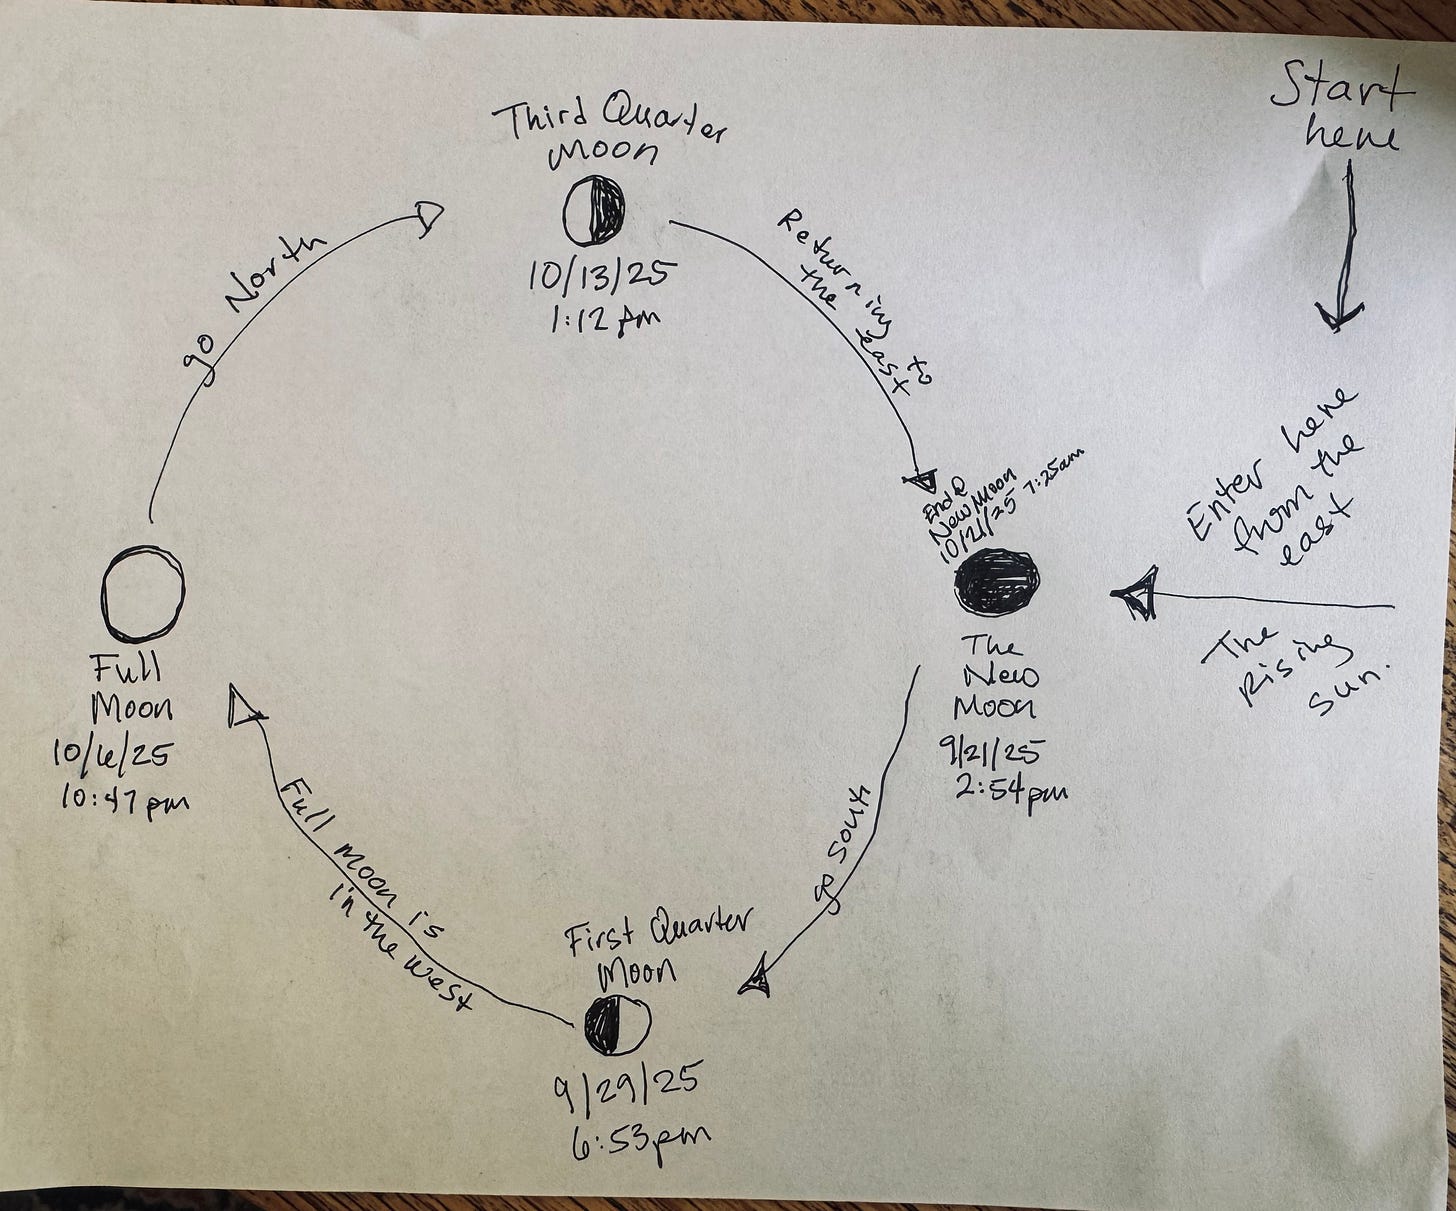 Start
here
Enter here
from the
east
The
Rising
sun.
The
New
Moon
9/21/25
2:54pm
go south
First Quarter
Moon
9/29/25
6:53pm
Full moon is
in the west
Full
Moon
10/6/25
10:47pm
go North
Third Quarter
Moon
10/13/25
1:12 pm
Returning to
the east
End @
New Moon
10/21/25 7:25am